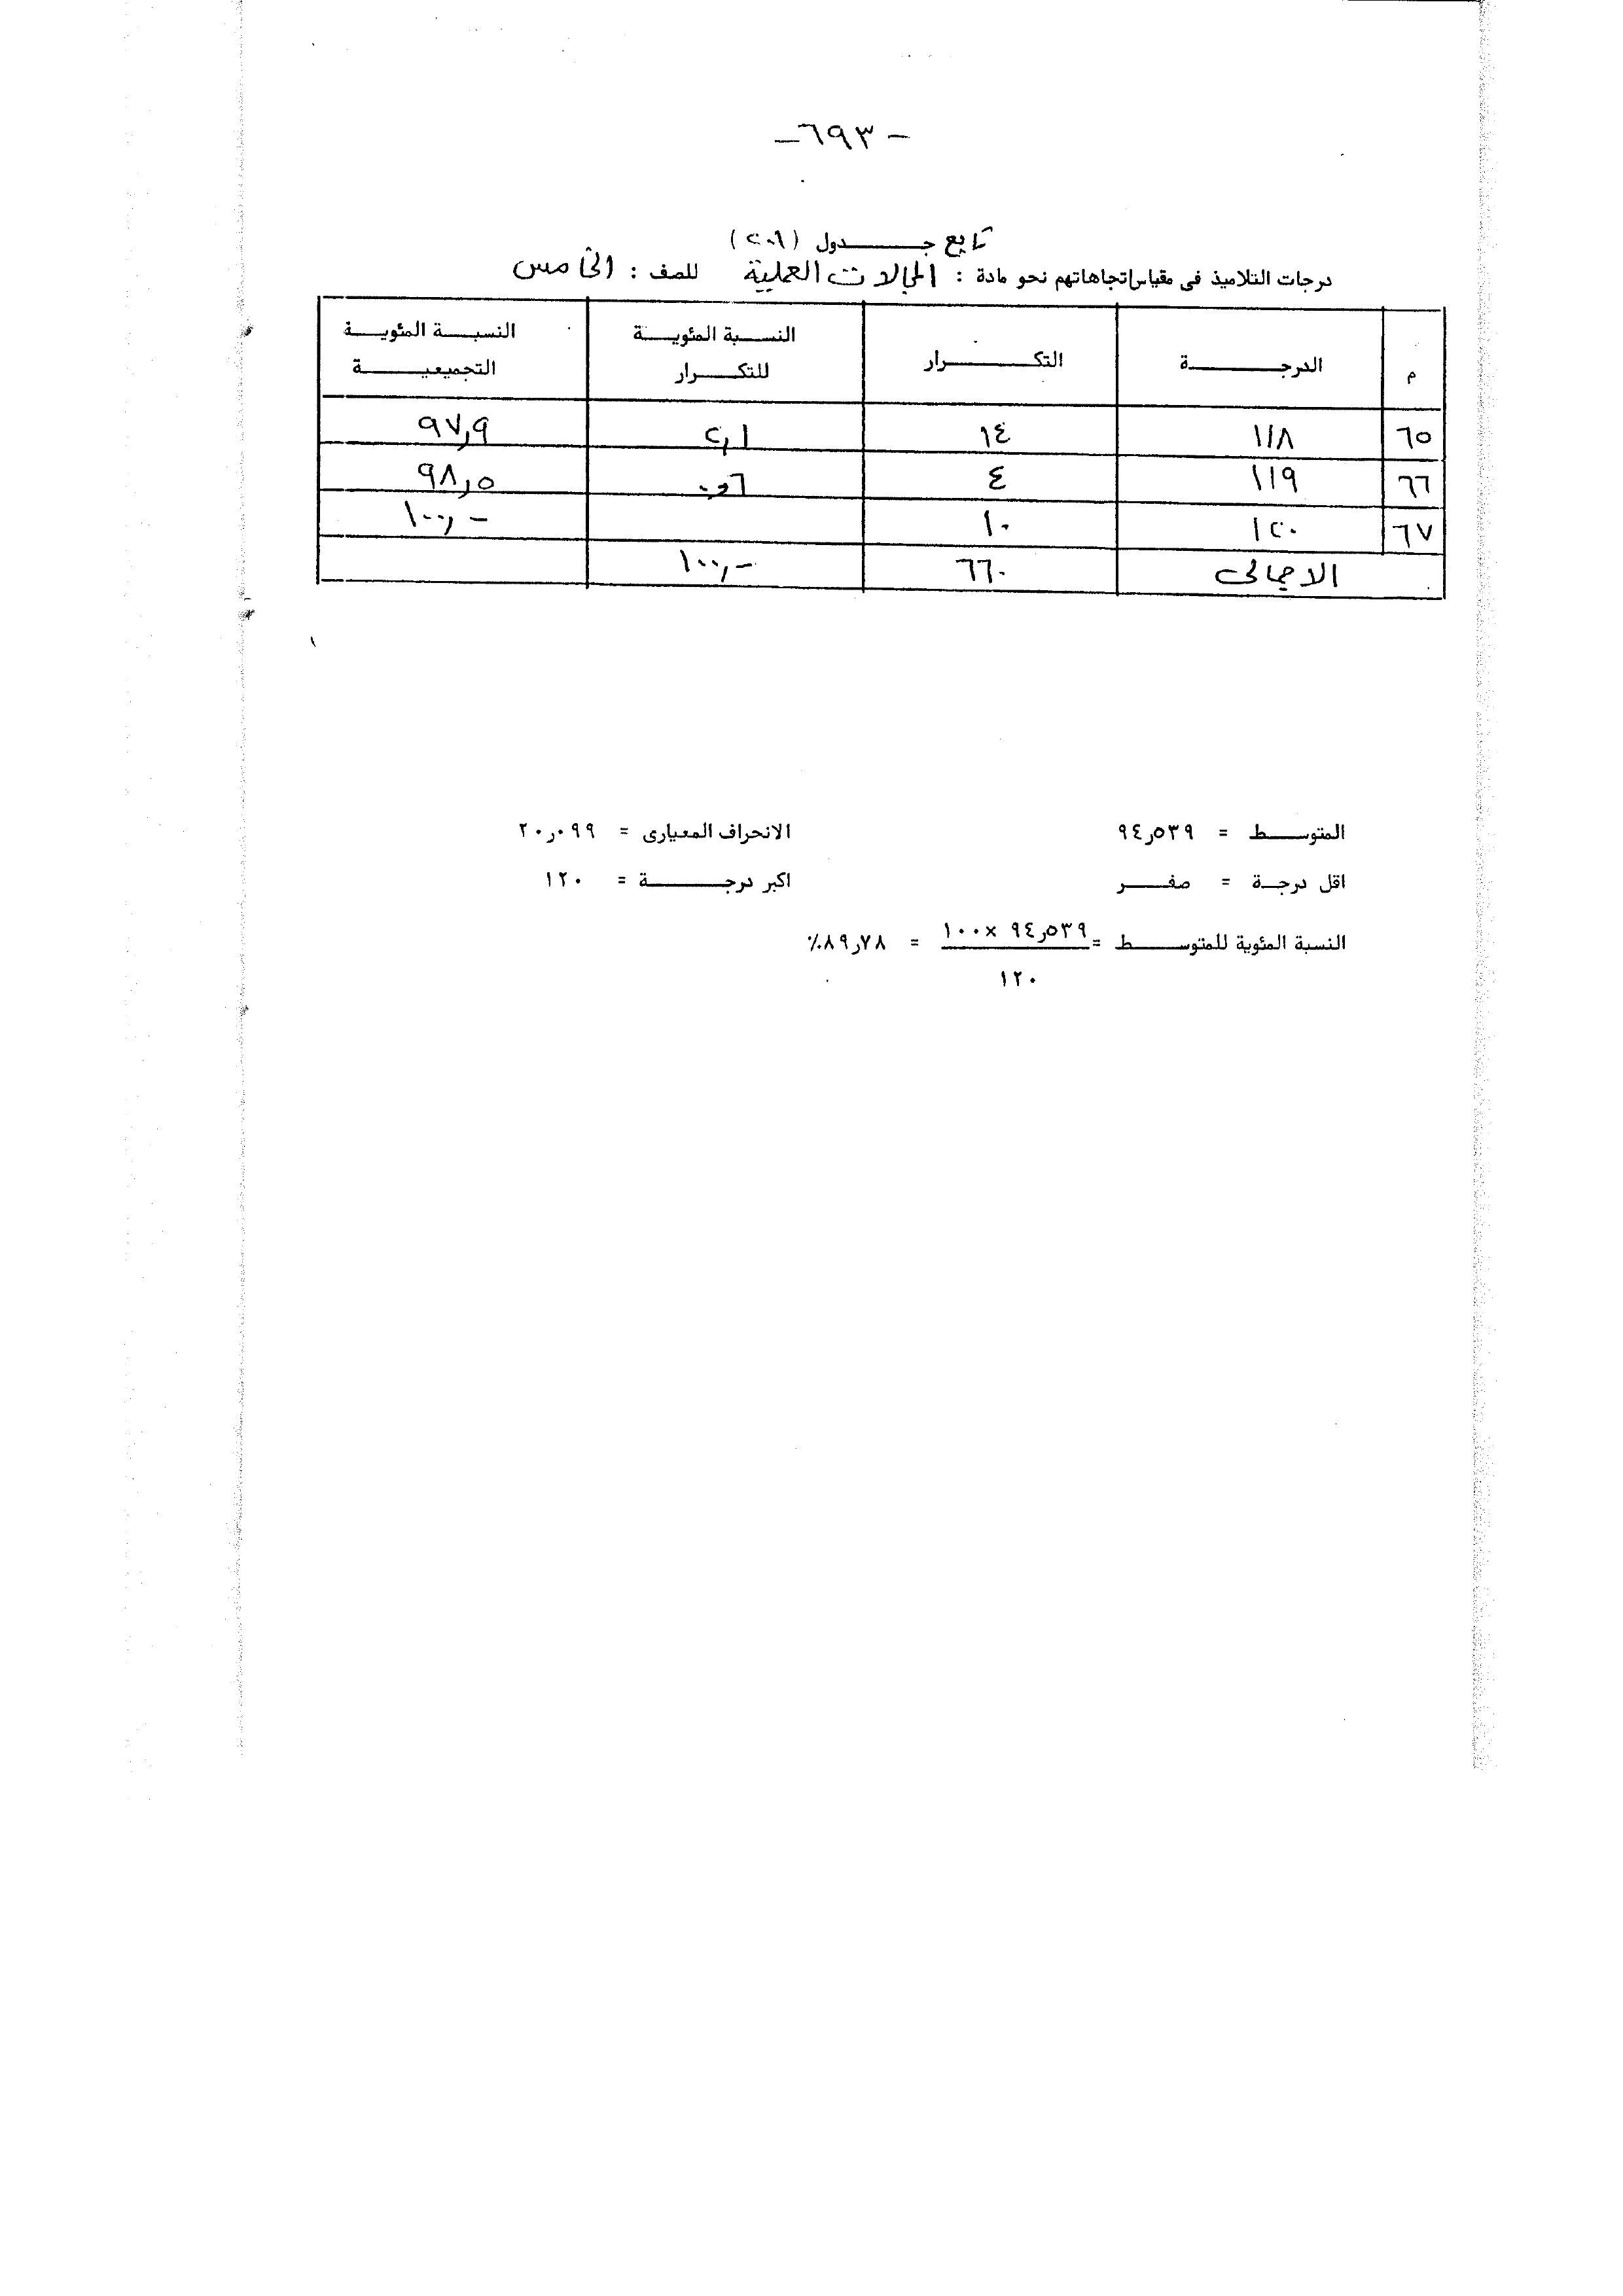 - ٦٩٣ -
تابع جدول (٢٠٦)
درجات التلاميذ فى مقياس اتجاهاتهم نحو مادة : المجالات العملية للصف : الخامس
م الدرجة التكرار النسبة المئوية للتكرار النسبة المئوية التجميعية
٦٥ ١١٨ ١٤ ٢,١ ٩٧,٩
٦٦ ١١٩ ٤ ٠,٦ ٩٨,٥
٦٧ ١٢٠ ١٠ ١٠٠,-
الاجمالى ٦٦٠ ١٠٠,-
المتوسط = ٩٤ر٥٣٩ الانحراف المعيارى = ٢٠ر٠٩٩
اقل درجة = صفر اكبر درجة = ١٢٠
النسبة المئوية للمتوسط = ٩٤ر٥٣٩ × ١٠٠ = ٨٩ر٧٨٪
١٢٠